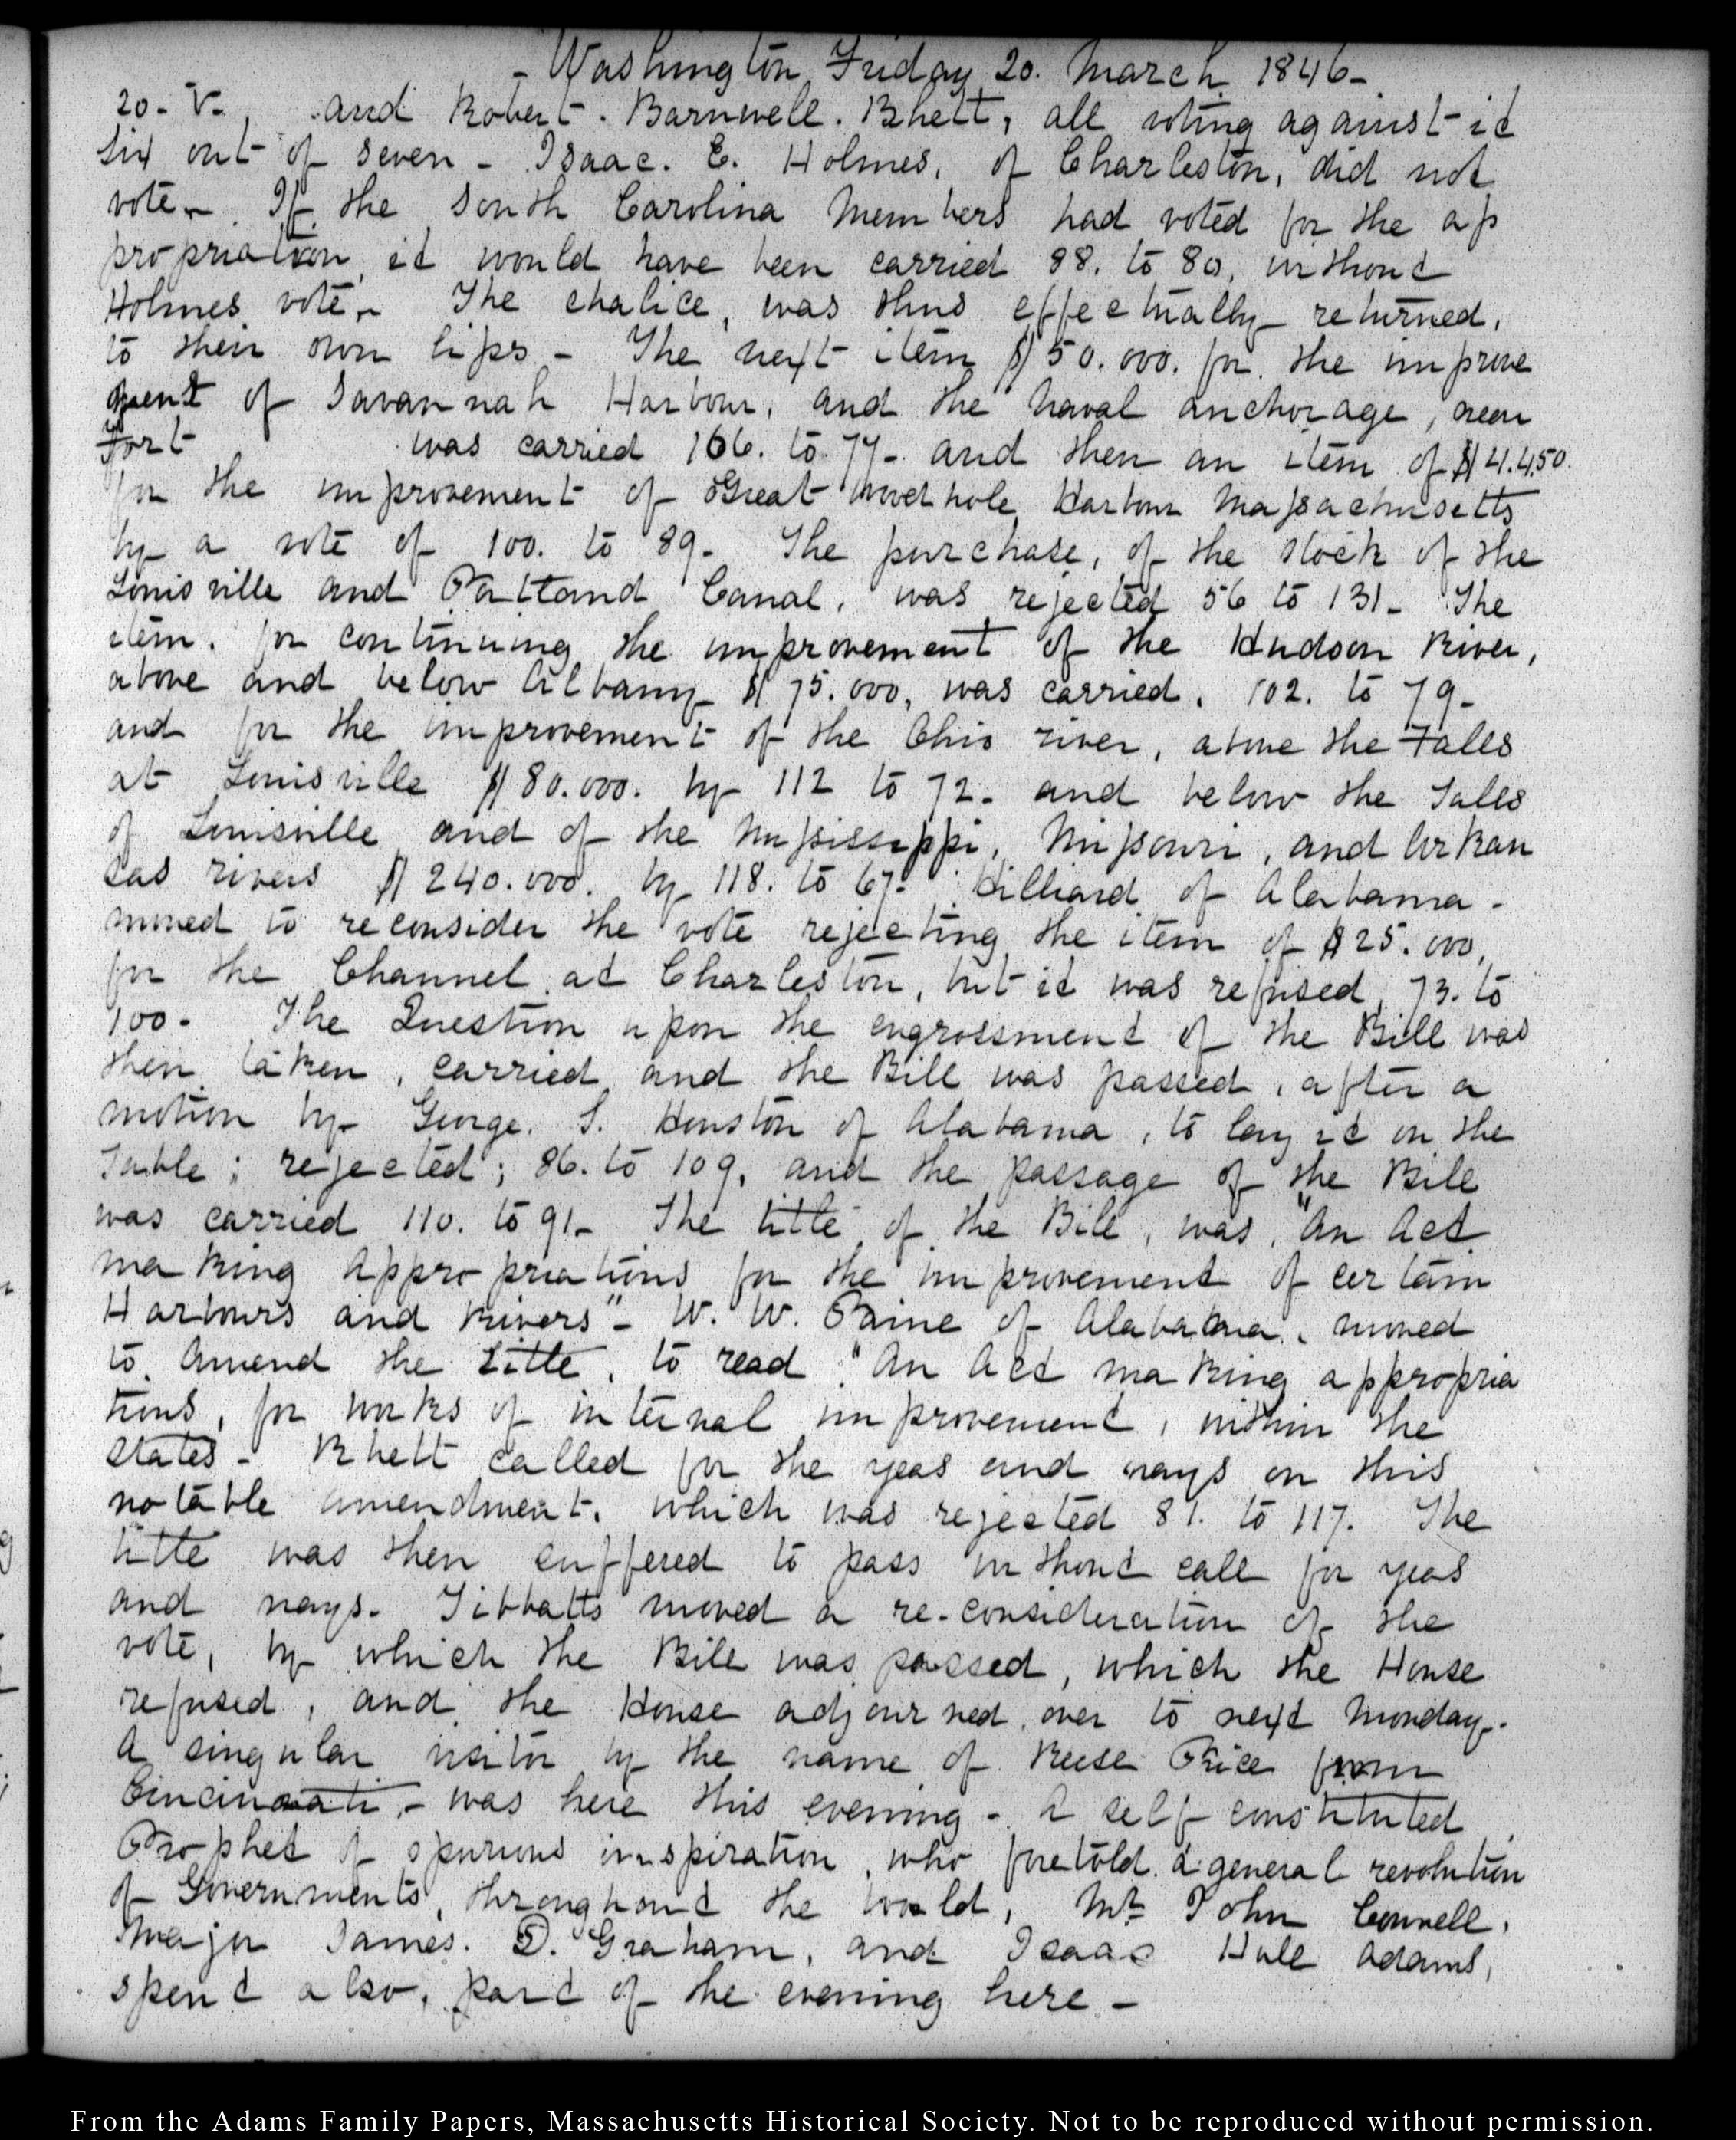 - Washington, Friday 20. March 1846-
20- V. and Robert. Barnwell. Rhett, all voting against it
six out of seven - Isaac. E. Holmes, of Charleston, did not
vote - If the South Carolina Members had voted for the ap
propriation, it would have been carried 88. to 80, without
Holmes vote, - The chalice, was thus effectually returned,
to their own lips - The next item $50.000. for the improve
ment of Savannah Harbour, and the naval anchorage, near
Fort was carried 106. to 77 - and then an item of $4.450.
for the improvement of Great woodhole Harbour Massachusetts
by a vote of 100. to 89 - The purchase, of the stock of the
Louisville and Portland Canal, was rejected 56 to 131 - The
item, for continuing the improvement of the Hudson River,
above and below Albany $75.000, was carried, 102. to 79 -
and for the improvement of the Ohio river, above the Falls
at Louisville $80.000. by 112 to 72 - and below the Falls
of Louisville and of the Mississippi, Missouri, and Arkan
sas rivers $240.000. by 118. to 67 - Hilliard of Alabama -
moved to reconsider the vote rejecting the item of $25.000,
for the Channel at Charleston, but it was refused, 73. to
100 - The Question upon the engrossment of the Bill was
then taken, carried and the Bill was passed, after a
motion by George. S. Houston of Alabama, to lay it on the
Table; rejected; 86. to 109, and the passage of the Bill
was carried 110. to 91 - The title of the Bill, was, "An Act
making appropriations for the improvement of certain
Harbours and Rivers" - W. W. Paine of Alabama, moved
to amend the title, to read "An Act making appropria
tions, for works of internal improvement, within the
States - Rhett called for the yeas and nays on this
notable amendment, which was rejected 81. to 117. The
title was then suffered to pass without call for yeas
and nays - Tibbatts moved a re-consideration of the
vote, by which the Bill was passed, which the House
refused, and the House adjourned over to next Monday -
A singular visitor by the name of Reese Price from
Cincinnati, - was here this evening - A self constituted
Prophet of spurious inspiration, who foretold a general revolution
of Governments, throughout the World, Mr. John Connell,
Major James. D. Graham, and Isaac Hull Adams,
spent also, part of the evening here -
From the Adams Family Papers, Massachusetts Historical Society. Not to be reproduced without permission.